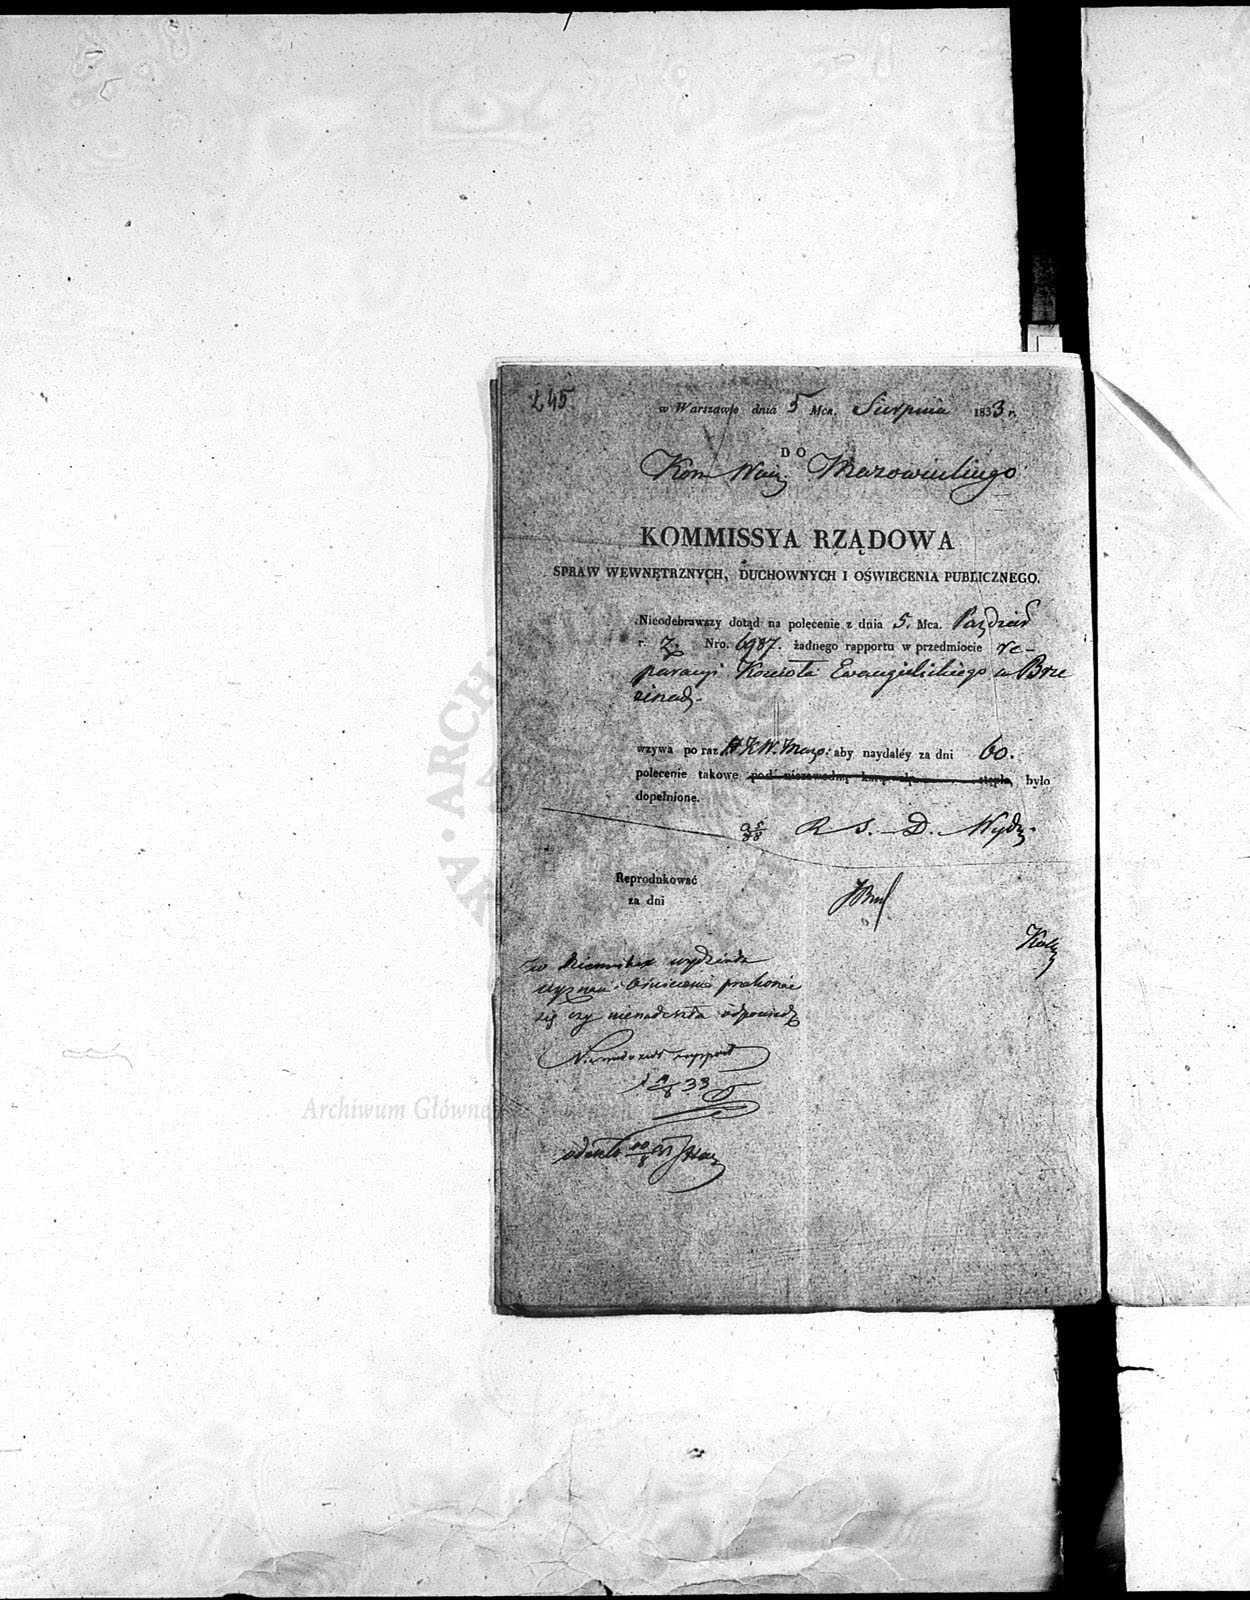 245
w Warszawie dnia 5 Mca. Sierpnia 1833 r.
DO
Kom Woj. Mazowieckiego
KOMMISSYA RZĄDOWA
SPRAW WEWNĘTRZNYCH, DUCHOWNYCH I OŚWIECENIA PUBLICZNEGO.
Nieodebrawszy dotąd na polecenie z dnia 5. Mca. Paździer
r. z. Nro. 6987. żadnego rapportu w przedmiocie re-
paracyi Kościoła Ewangelickiego w Brze
zinach.
wzywa po raz K.W. Mazo: aby naydaléy za dni 60.
polecenie takowe pod niezawodną karą było
dopełnione.
R S. D. Wydz.
Reprodukować
za dni
w Dzienniku wydziału
wyznań i Oświecenia przekonać
się czy nienadeszła odpowiedź
Nienadszedł rapport
8 33
odeszło 10/8
Archiwum Główne